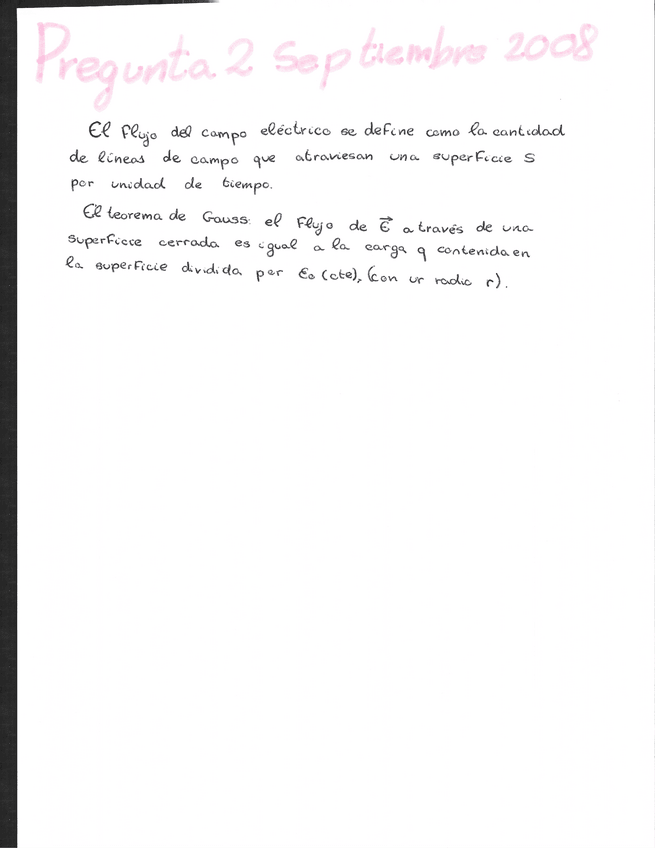 Pregunta 2 Septiembre 2008
El flujo del campo eléctrico se define como la cantidad
de líneas de campo que atraviesan una superficie S
por unidad de tiempo.
El teorema de Gauss: el flujo de E⃗ a través de una
superficie cerrada es igual a la carga q contenida en
la superficie dividida por ε₀ (cte), (con un radio r).